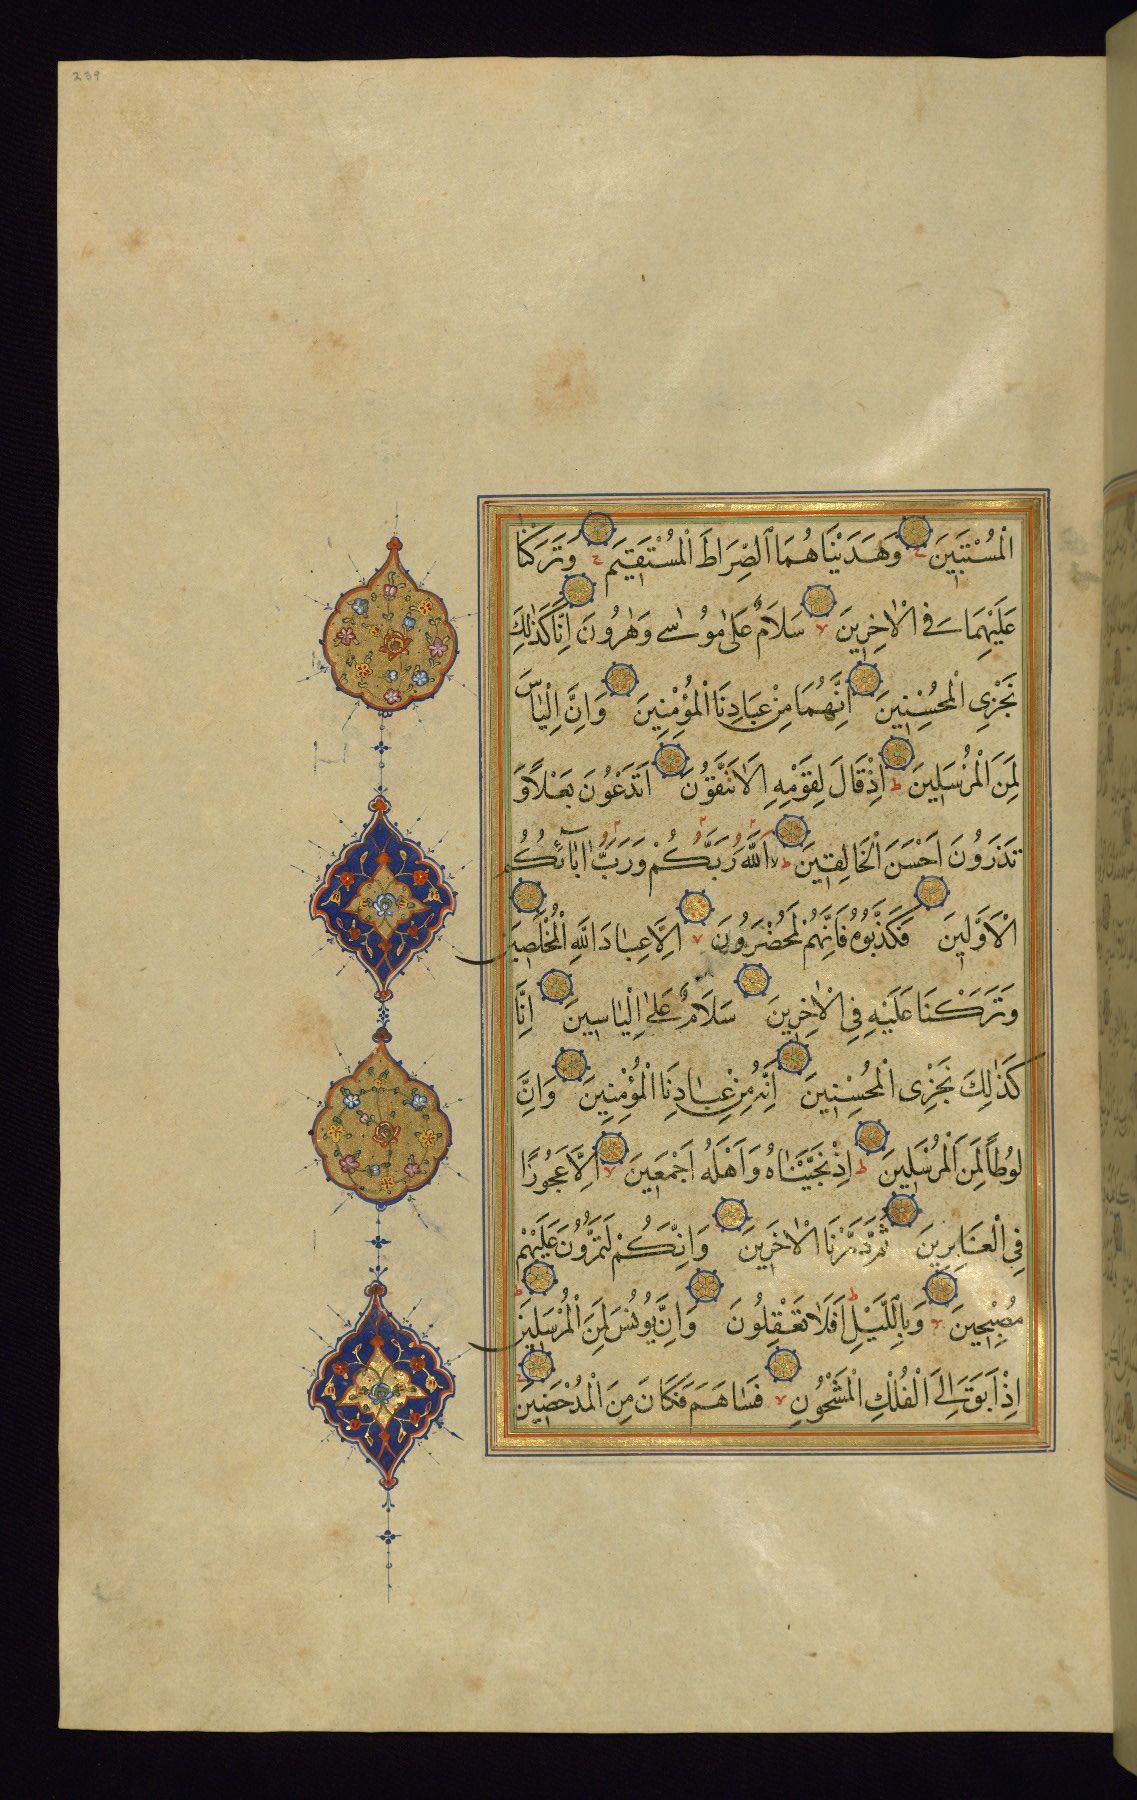 239
الْمُسْتَبِينَ وَهَدَيْنَاهُمَا الصِّرَاطَ الْمُسْتَقِيمَ وَتَرَكْنَا
عَلَيْهِمَا فِي الْاٰخِرِينَ سَلَامٌ عَلٰى مُوسٰى وَهٰرُونَ اِنَّا كَذٰلِكَ
نَجْزِى الْمُحْسِنِينَ اِنَّهُمَا مِنْ عِبَادِنَا الْمُؤْمِنِينَ وَاِنَّ اِلْيَاسَ
لَمِنَ الْمُرْسَلِينَ اِذْ قَالَ لِقَوْمِهِ اَلَا تَتَّقُونَ اَتَدْعُونَ بَعْلًا وَ
تَذَرُونَ اَحْسَنَ الْخَالِقِينَ اَللّٰهَ رَبَّكُمْ وَرَبَّ اٰبَآئِكُمُ
الْاَوَّلِينَ فَكَذَّبُوهُ فَاِنَّهُمْ لَمُحْضَرُونَ اِلَّا عِبَادَ اللّٰهِ الْمُخْلَصِينَ
وَتَرَكْنَا عَلَيْهِ فِي الْاٰخِرِينَ سَلَامٌ عَلٰى اِلْيَاسِينَ اِنَّا
كَذٰلِكَ نَجْزِى الْمُحْسِنِينَ اِنَّهُ مِنْ عِبَادِنَا الْمُؤْمِنِينَ وَاِنَّ
لُوطًا لَمِنَ الْمُرْسَلِينَ اِذْ نَجَّيْنَاهُ وَاَهْلَهُ اَجْمَعِينَ اِلَّا عَجُوزًا
فِي الْغَابِرِينَ ثُمَّ دَمَّرْنَا الْاٰخَرِينَ وَاِنَّكُمْ لَتَمُرُّونَ عَلَيْهِمْ
مُصْبِحِينَ وَبِاللَّيْلِ اَفَلَا تَعْقِلُونَ وَاِنَّ يُونُسَ لَمِنَ الْمُرْسَلِينَ
اِذْ اَبَقَ اِلَى الْفُلْكِ الْمَشْحُونِ فَسَاهَمَ فَكَانَ مِنَ الْمُدْحَضِينَ